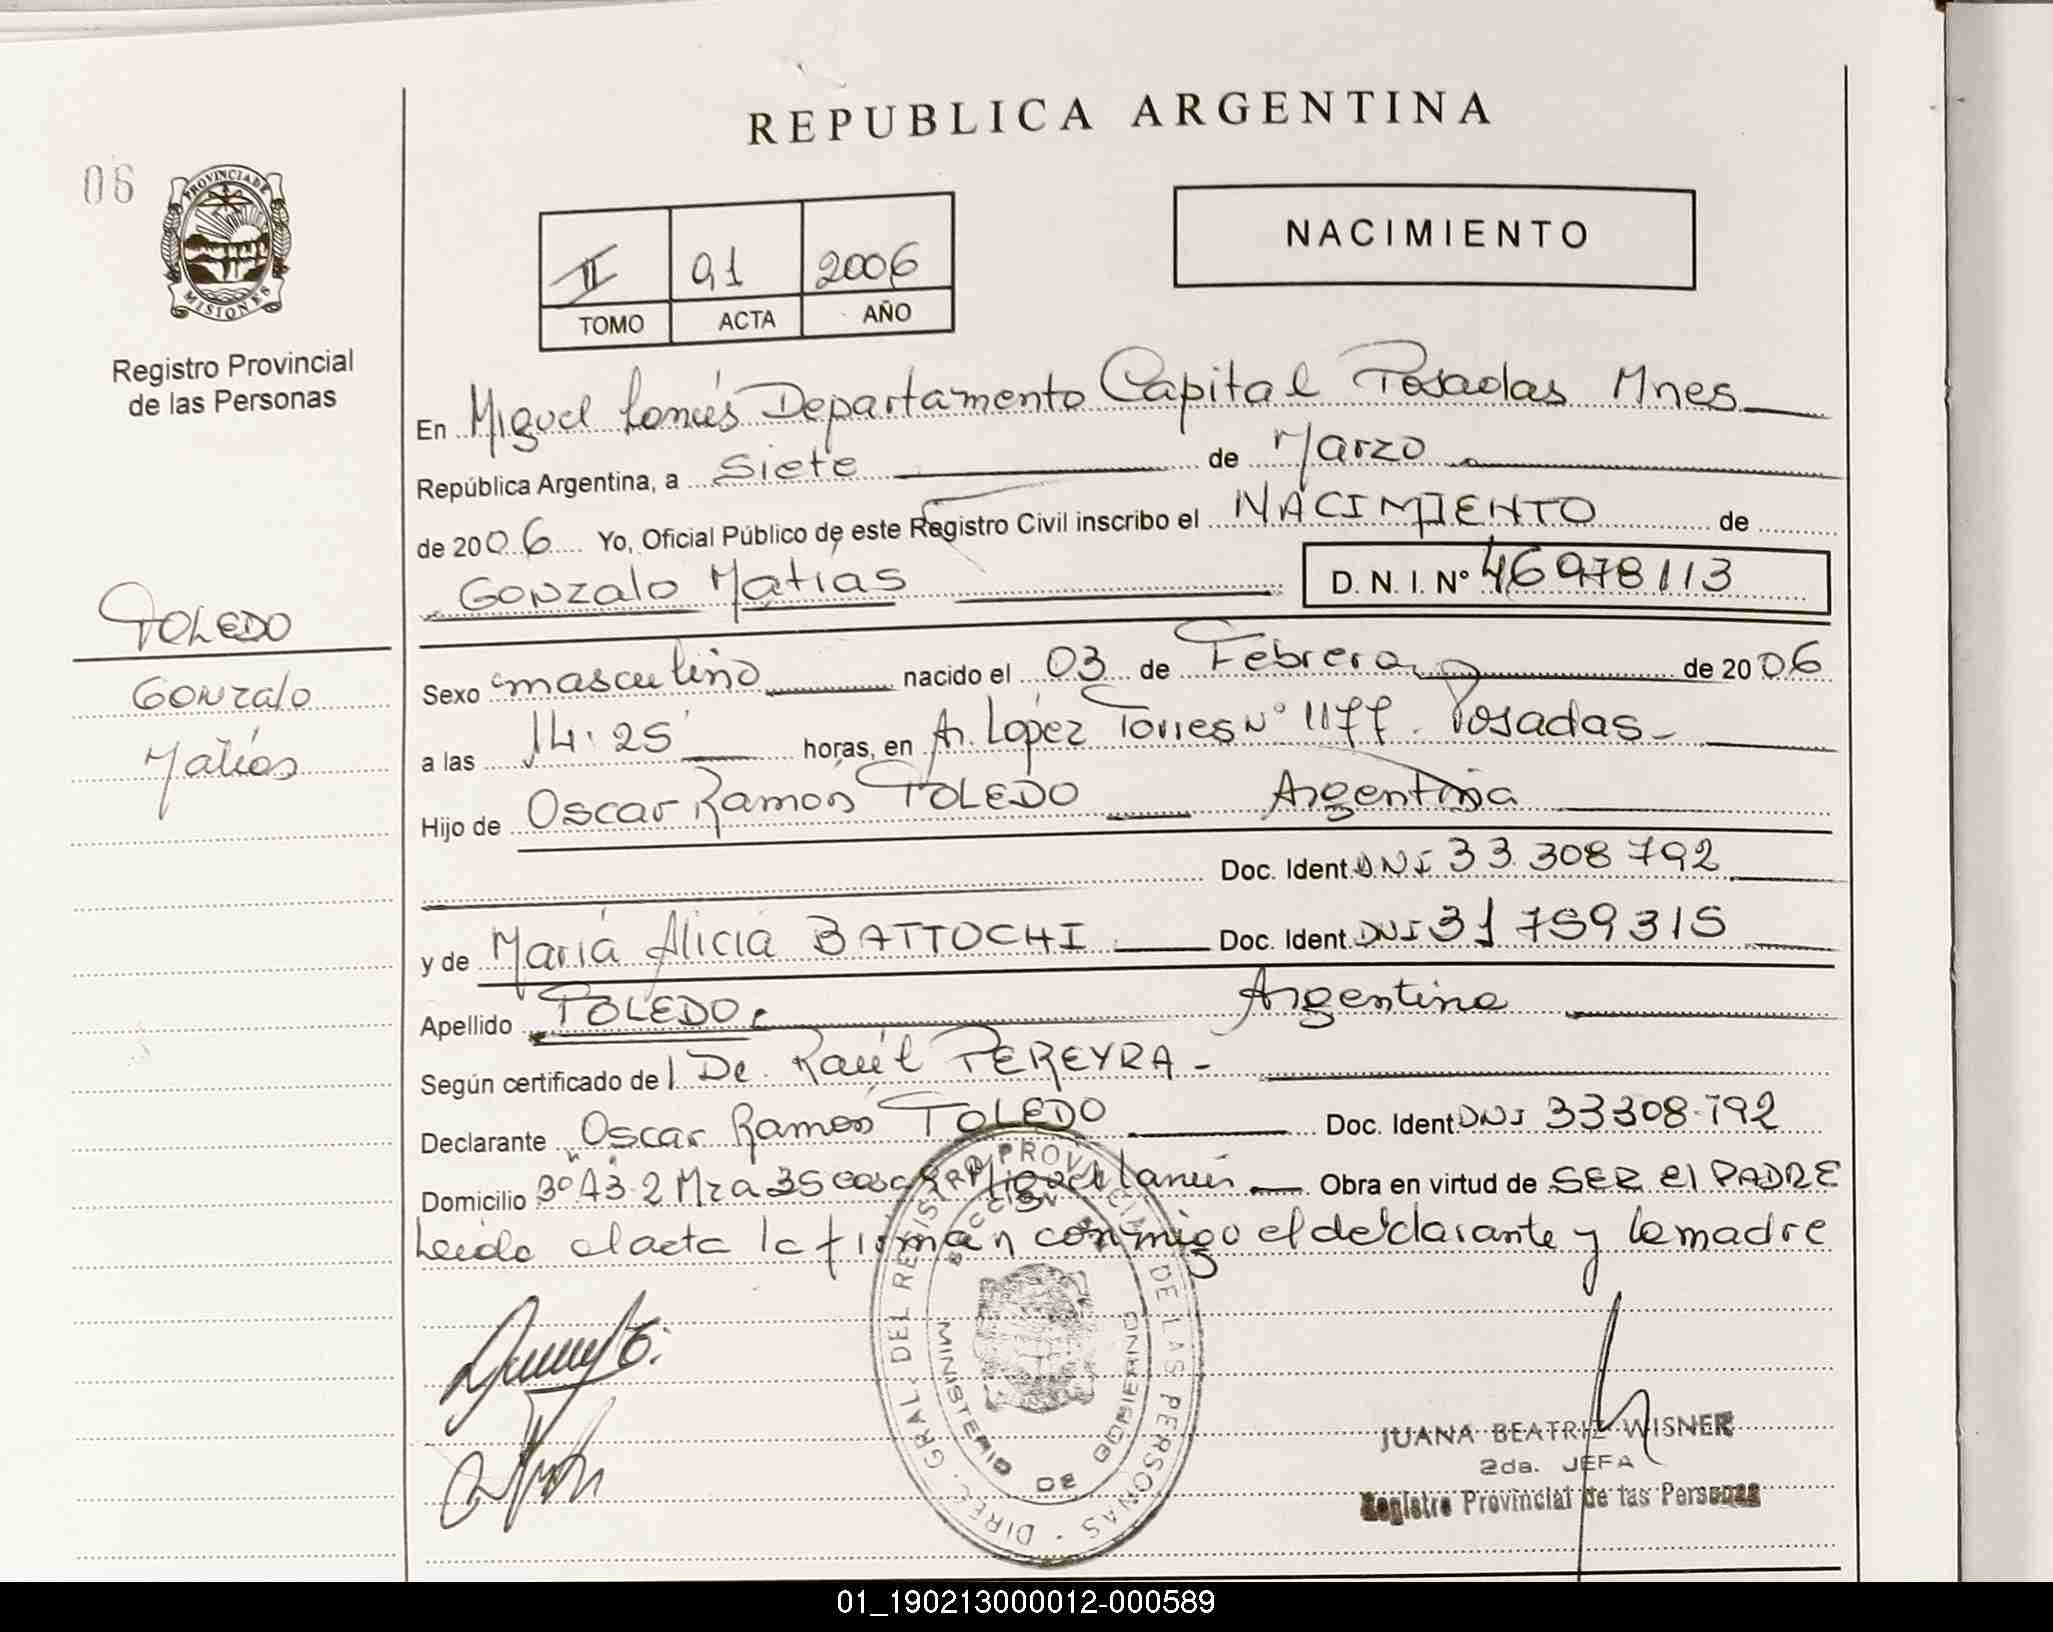 REPUBLICA ARGENTINA
06
PROVINCIA DE MISIONES
Registro Provincial
de las Personas
II 91 2006
TOMO ACTA AÑO
NACIMIENTO
En Miguel Lanús Departamento Capital Posadas Mnes
República Argentina, a siete de Marzo
de 2006 Yo, Oficial Público de este Registro Civil inscribo el NACIMIENTO de
Gonzalo Matías D. N. I. Nº 46978113
TOLEDO
Gonzalo
Matías
Sexo masculino nacido el 03 de Febrero de 2006
a las 14:25' horas, en Av. López Torres Nº 1177. Posadas
Hijo de Oscar Ramón TOLEDO Argentina
Doc. Ident DNI 33.308792
y de María Alicia BATTOCHI Doc. Ident DNI 31759315
Apellido TOLEDO Argentina
Según certificado del De. Raúl PEREYRA -
Declarante Oscar Ramón TOLEDO Doc. Ident DNI 33308.792
Domicilio Mza 35 casa Miguel Lanús Obra en virtud de SER el PADRE
Leida el acta la firman conmigo el declarante y la madre
DIREC. GRAL. DEL REGISTRO PROVINCIAL DE LAS PERSONAS
MINISTERIO DE GOBIERNO
JUANA BEATRIZ WISNER
2da. JEFA
Registro Provincial de las Personas
01_190213000012-000589